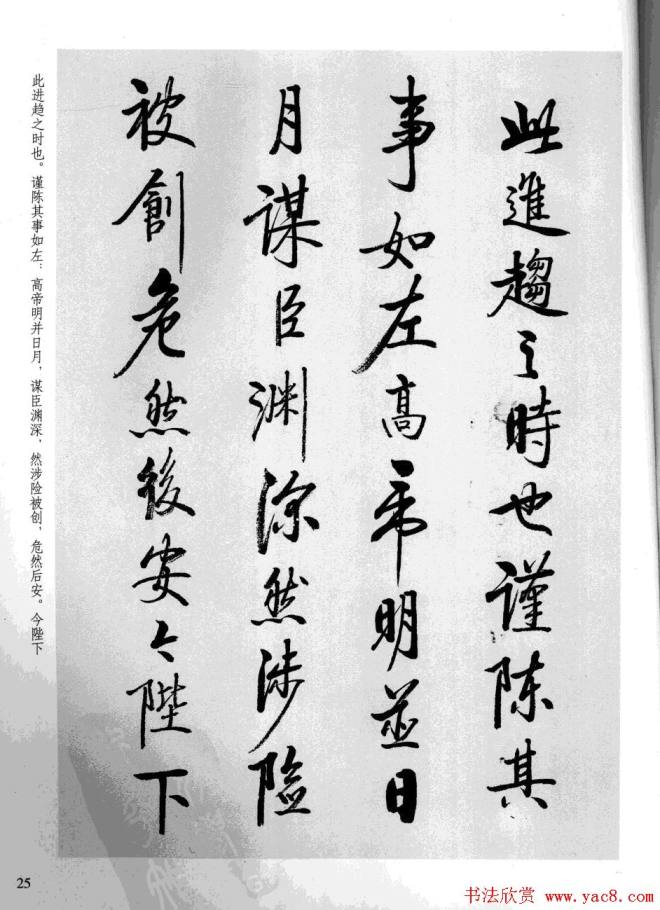 此進趨之時也謹陳其
事如左高帝明並日
月謀臣淵深然涉險
被創危然後安今陛下
此进趋之时也。谨陈其事如左：高帝明并日月，谋臣渊深，然涉险被创，危然后安。今陛下
25
书法欣赏 www.yac8.com